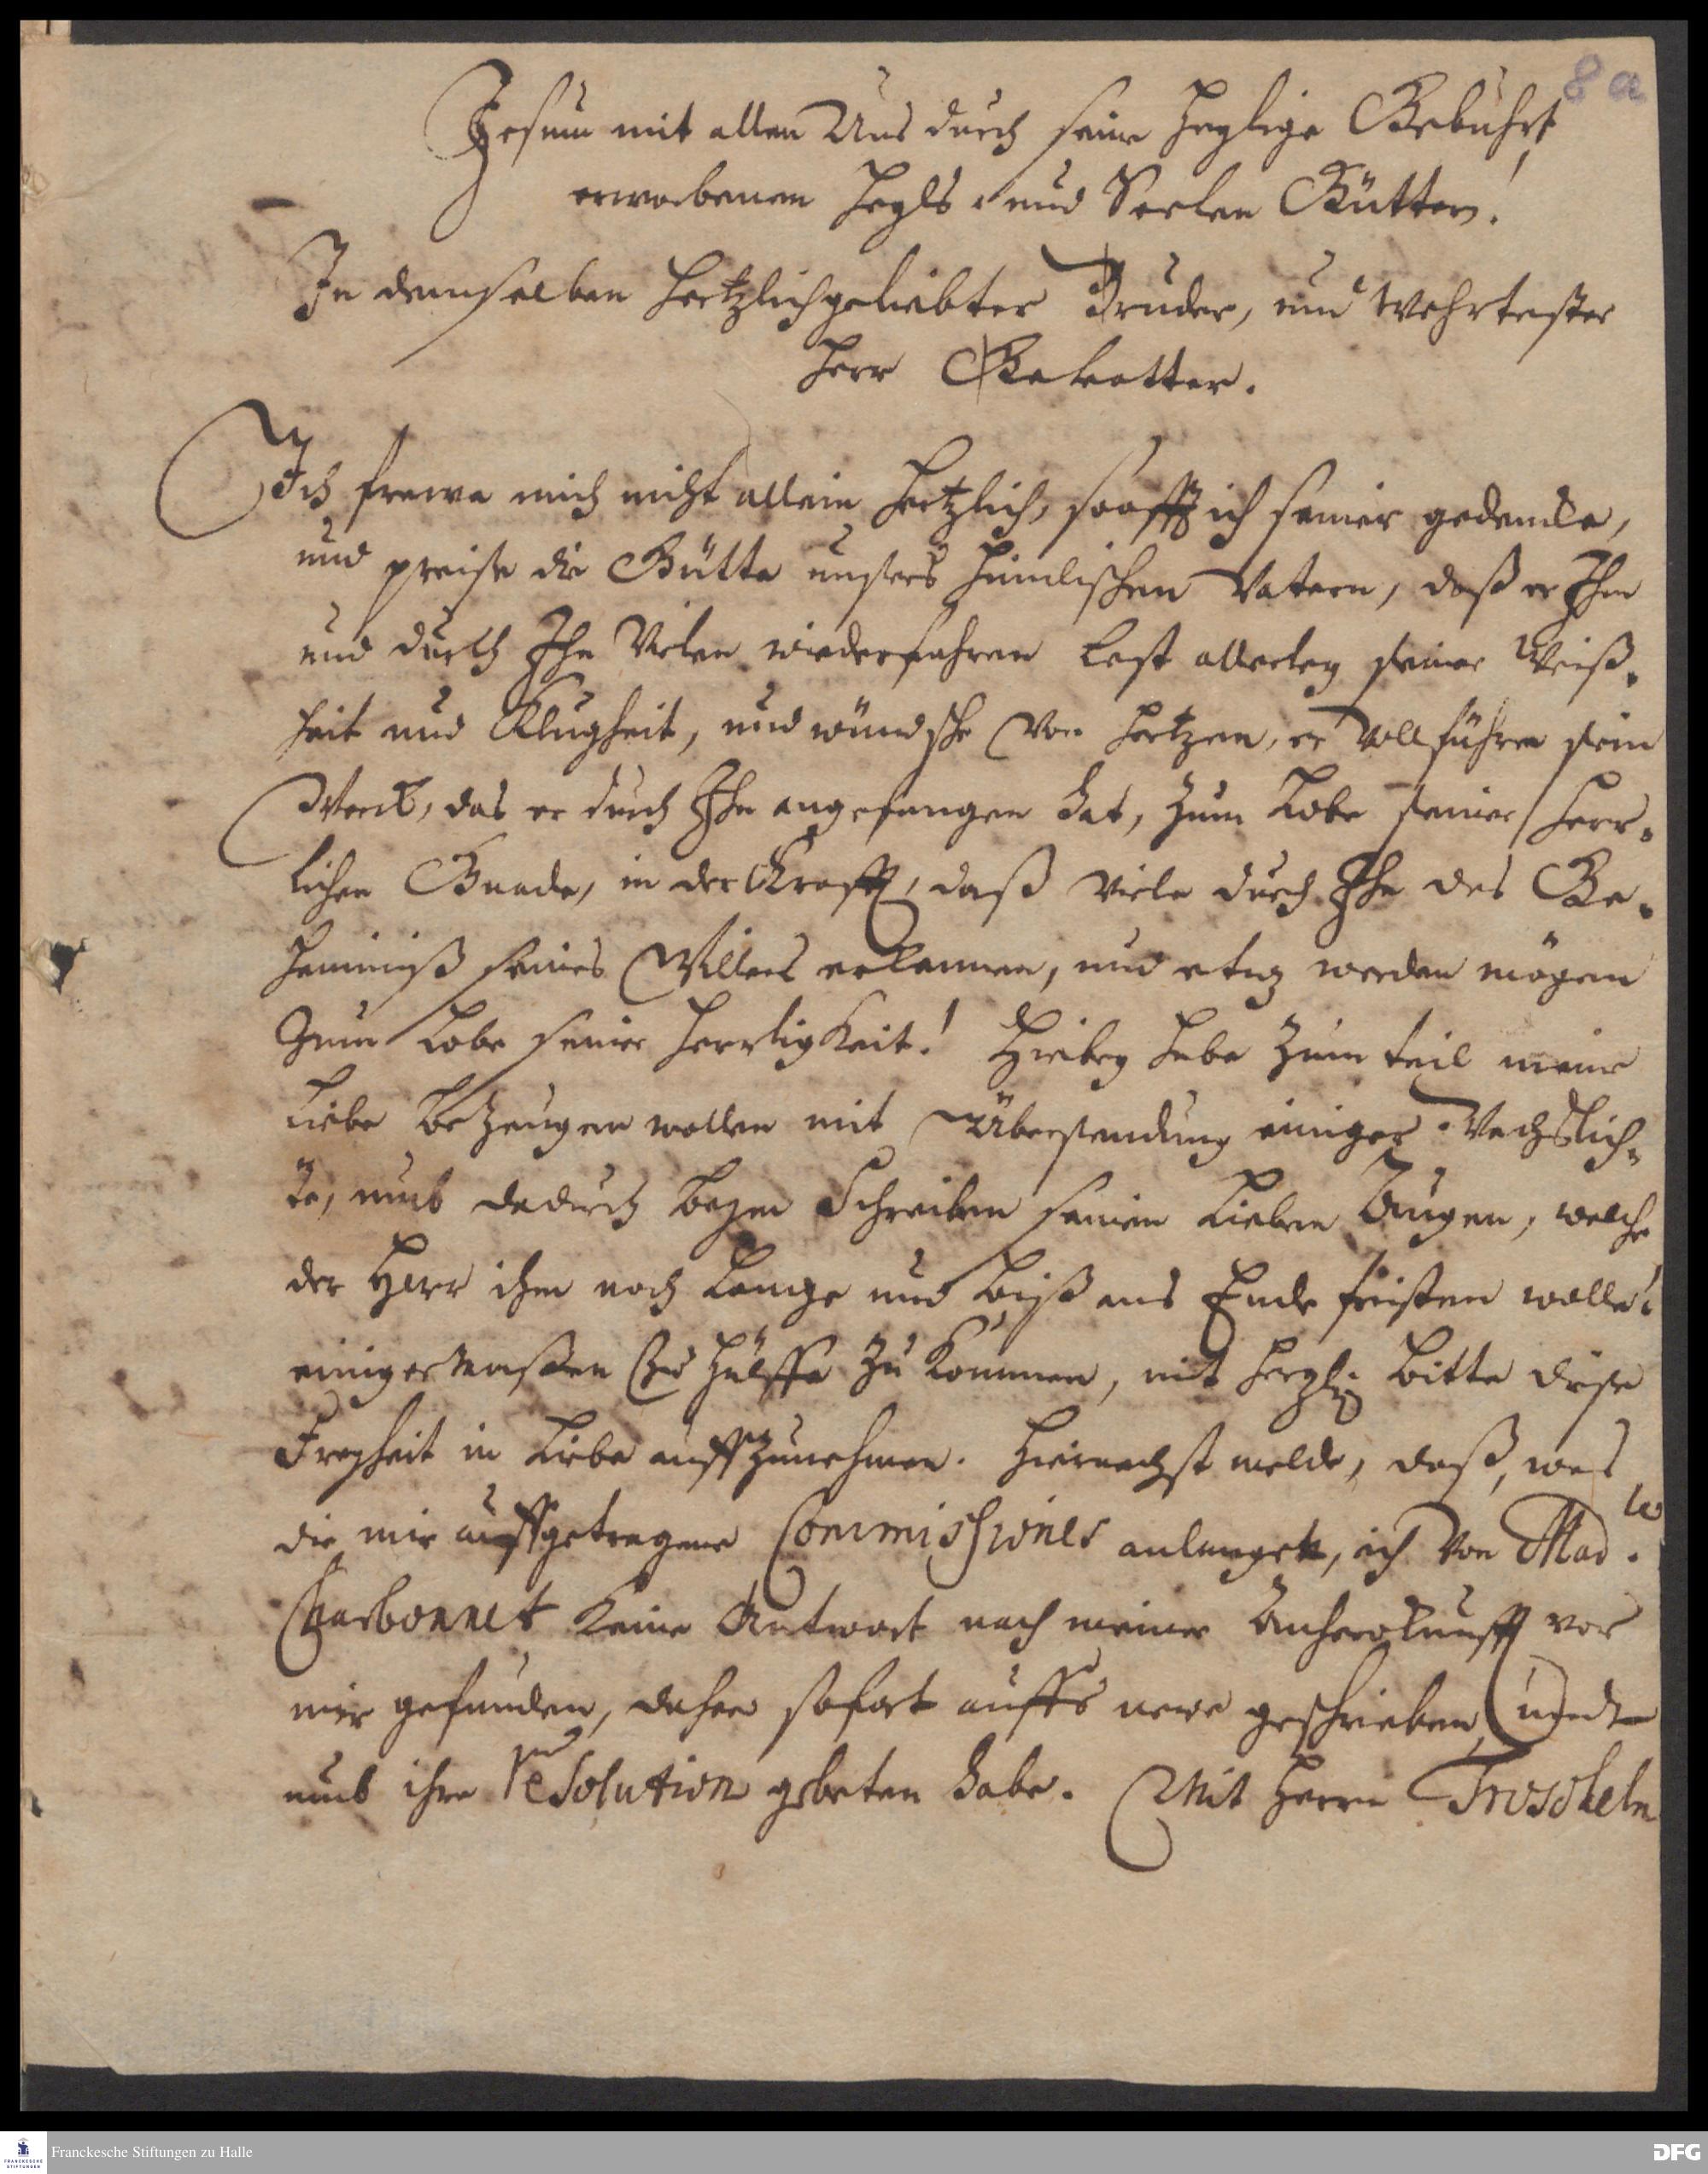 8a
Jesum mit allen Uns durch seine heylige Gebuhrt
erworbenen Heyls- und Seelen Gütter!
In demselben hertzlichgeliebter Bruder, und Wehrtester
Herr Gevatter.
Ich frewe mich nicht allein hertzlich, soofft ich seiner gedencke,
und preise die Gütte unsers himlischen Vatern, daß er Ihm
und durch Ihn Vielen wiederfahren Lest allerley seiner Weiß-
heit und Klugheit, und wündsche Von Hertzen, er Vollführe sein
Werck, das er durch Ihn angefangen hat, Zum Lobe seiner Herr-
lichen Gnade, in der Krafft, daß Viele durch Ihn das Ge-
heimniß seines Willens erkennen, und etwz werden mögen
Zum Lobe seiner Herrligkeit! Hiebey habe Zum teil meine
Liebe beZeugen wollen mit Übersendung einiger Wachslich-
te, umb dadurch beym Schreiben seinen Lieben Augen, welche
der Herr ihm noch Lange und biß ans Ende fristen wolle!
einiger Maßen Zu Hülffe Zu Kommen, mit hertzl. bitte diese
Freyheit in Liebe auffZunehmen. Hiernechst melde, daß, was
die mir auffgetragene Commissiones anlanget, ich Von Mad.le
Charbonnet Keine Antwort nach meiner Anherokunfft vor
mir gefunden, daher sofort auffs newe geschrieben, undt
umb ihre resolution gebeten habe. Mit Herrn Troscheln
Franckesche Stiftungen zu Halle
FRANCKESCHE STIFTUNGEN
DFG